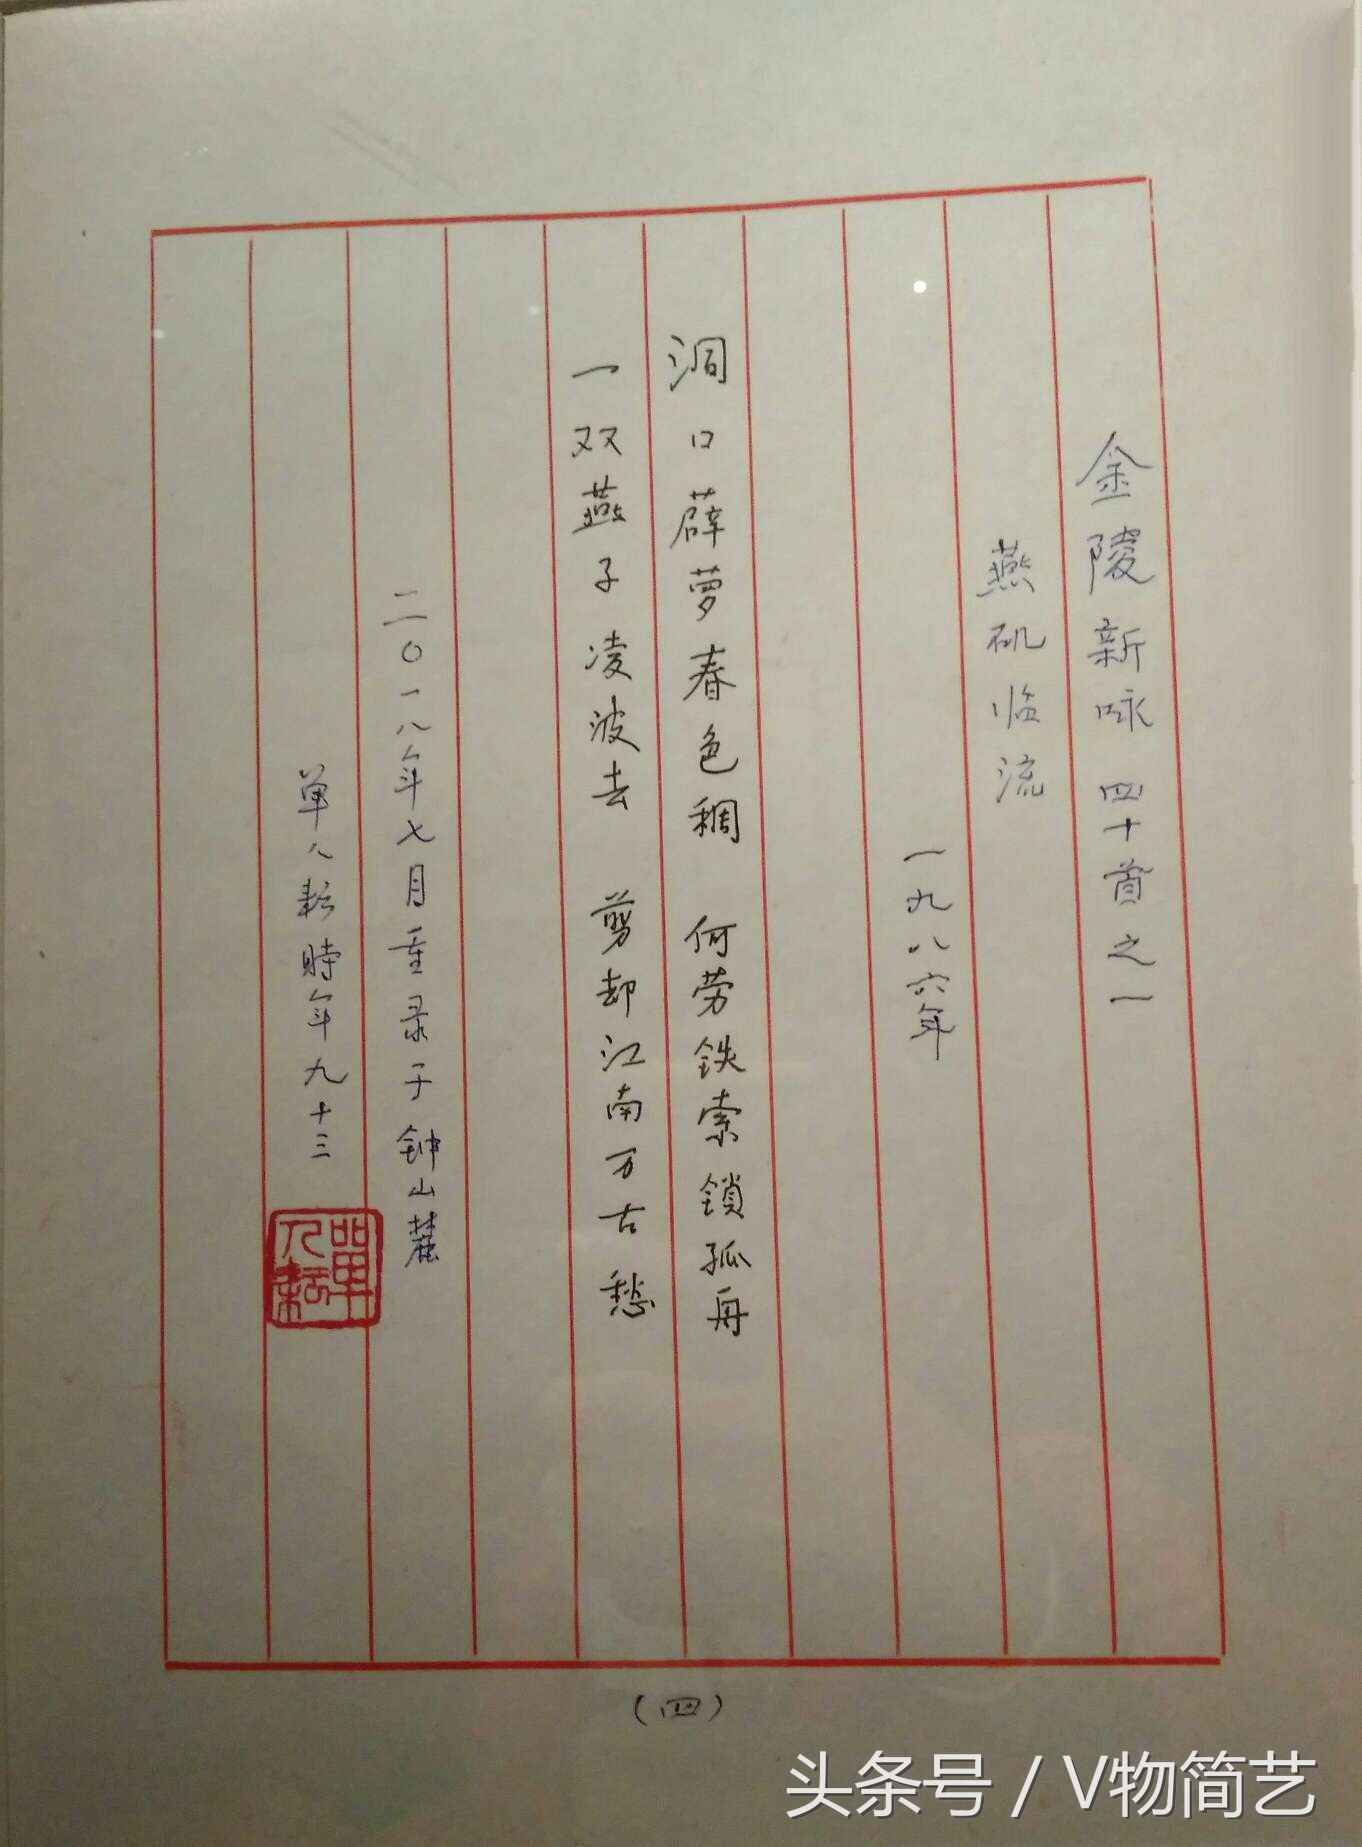 金陵新咏 四十首之一
燕矶临流
一九八六年
洞口薜萝春色稠 何劳铁索锁孤舟
一双燕子凌波去 剪却江南万古愁
二〇一八年七月重录于钟山麓
单人耘時年九十三
單人耘
(四)
头条号 / V物简艺